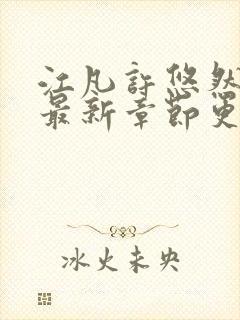 江凡许悠然
最新章节更
冰火未央